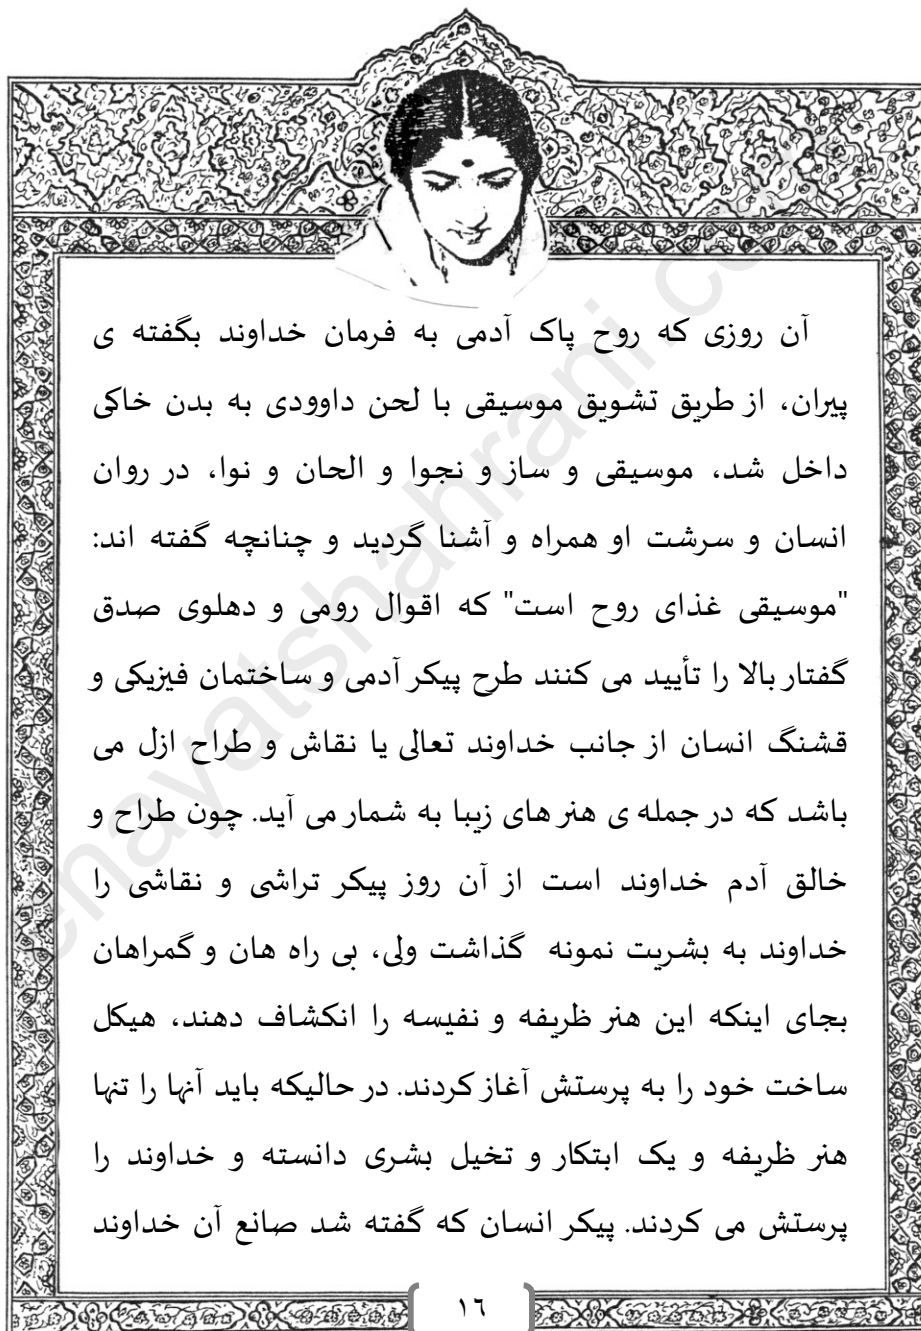 آن روزی که روح پاک آدمی به فرمان خداوند بگفته ی
پیران، از طریق تشویق موسیقی با لحن داوودی به بدن خاکی
داخل شد، موسیقی و ساز و نجوا و الحان و نوا، در روان
انسان و سرشت او همراه و آشنا گردید و چنانچه گفته اند:
"موسیقی غذای روح است" که اقوال رومی و دهلوی صدق
گفتار بالا را تأیید می کنند طرح پیکر آدمی و ساختمان فیزیکی و
قشنگ انسان از جانب خداوند تعالی یا نقاش و طراح ازل می
باشد که در جمله ی هنر های زیبا به شمار می آید. چون طراح و
خالق آدم خداوند است از آن روز پیکر تراشی و نقاشی را
خداوند به بشریت نمونه گذاشت ولی، بی راه هان و گمراهان
بجای اینکه این هنر ظریفه و نفیسه را انکشاف دهند، هیکل
ساخت خود را به پرستش آغاز کردند. در حالیکه باید آنها را تنها
هنر ظریفه و یک ابتکار و تخیل بشری دانسته و خداوند را
پرستش می کردند. پیکر انسان که گفته شد صانع آن خداوند
١٦